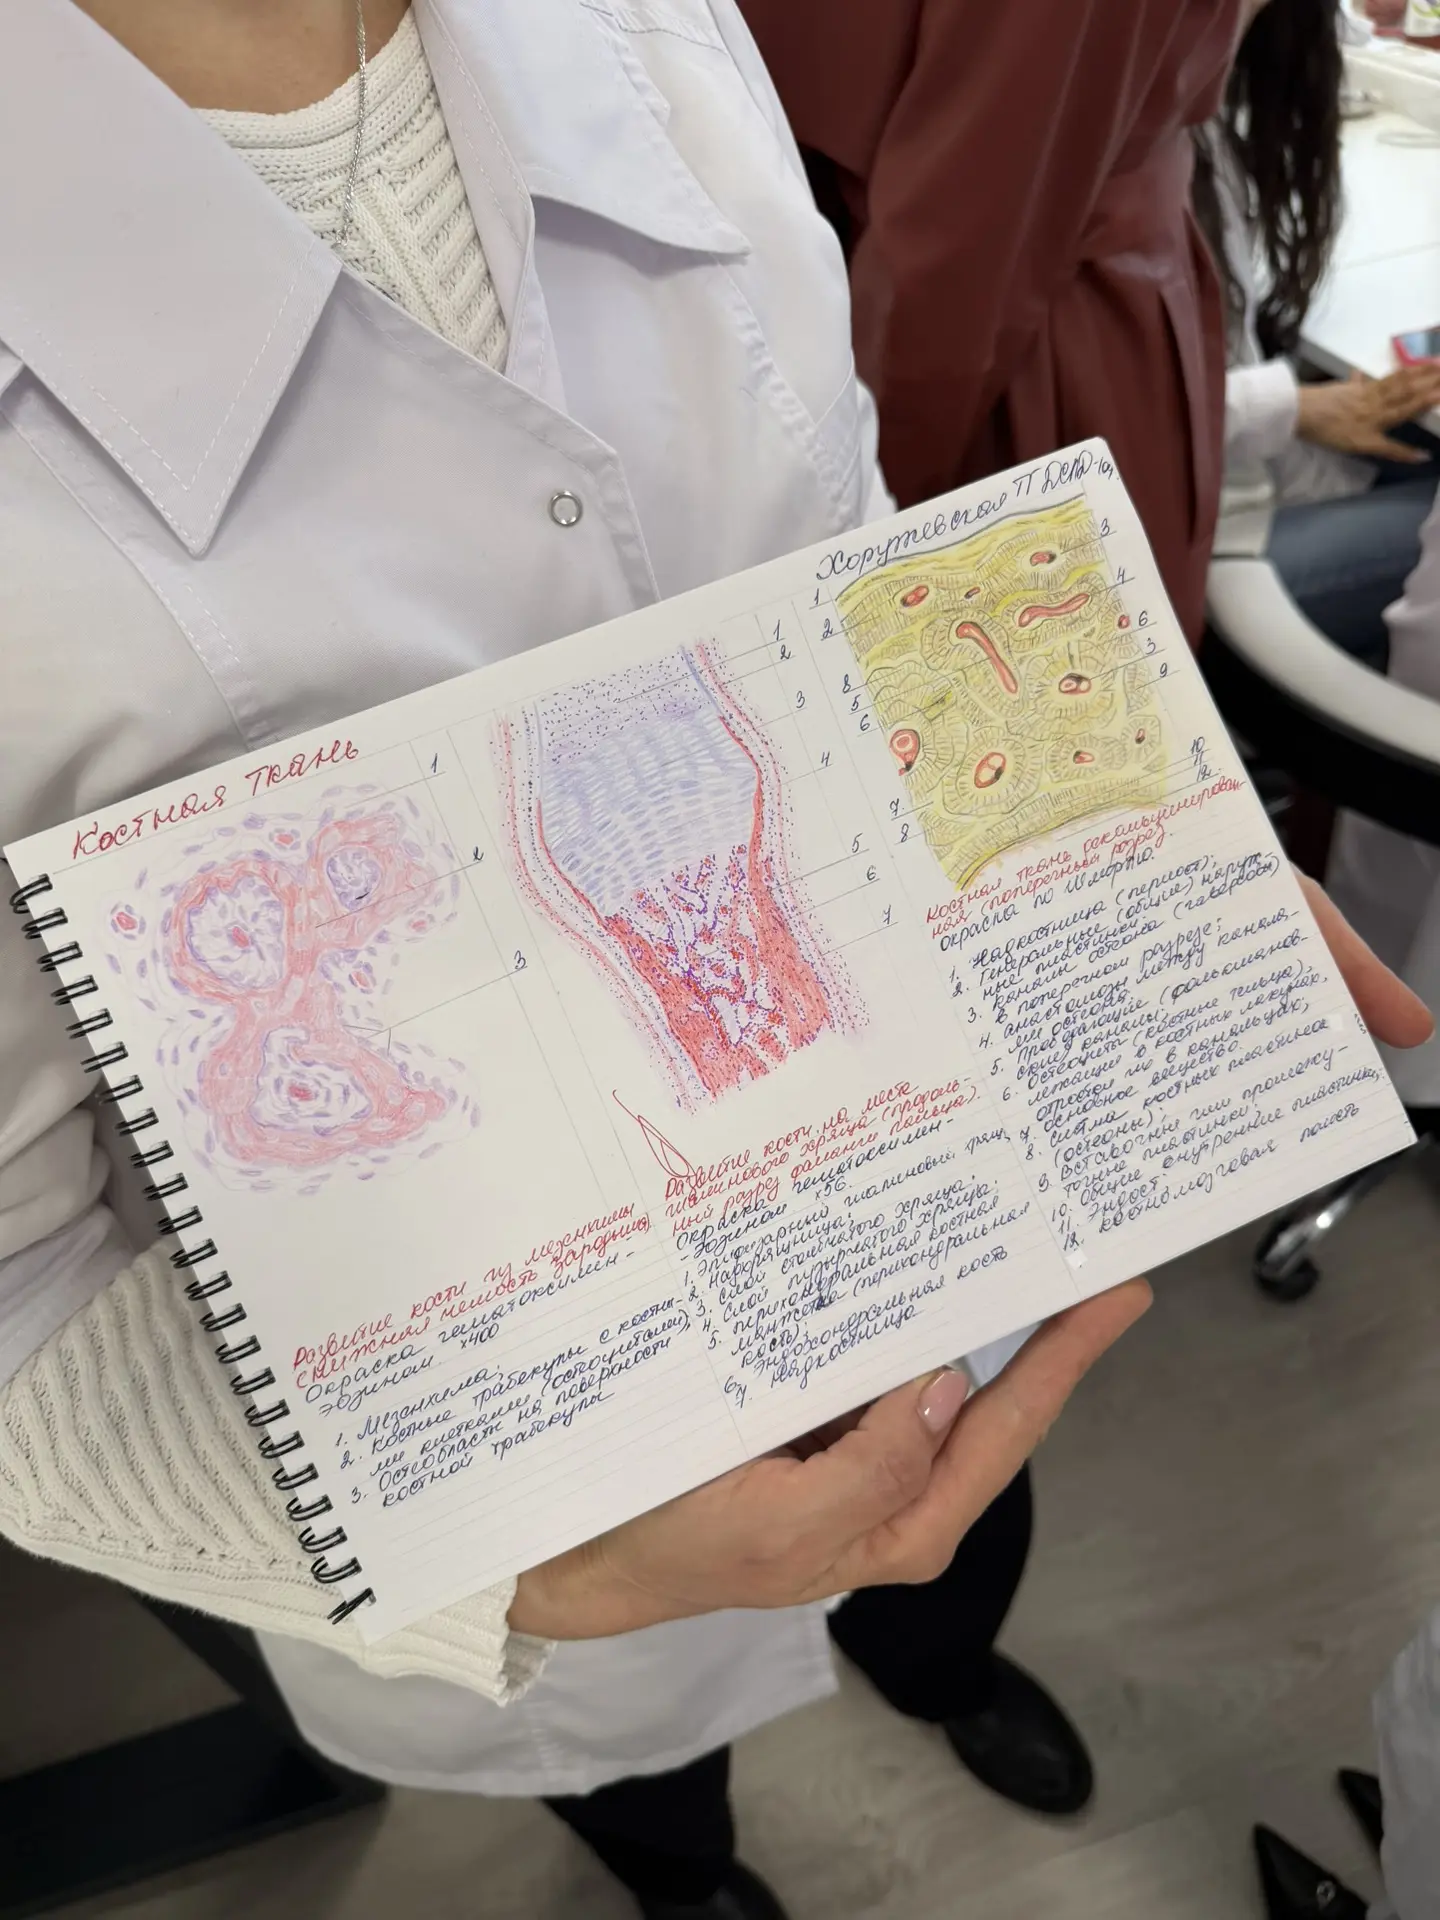 Костная ткань
Хоружевская П
1
2
3
Развитие кости из мезенхимы
(нижняя челюсть зародыша)
Окраска гематоксилин-
эозином ×400
1. Мезенхима;
2. Костные трабекулы с костны-
ми клетками (остеоцитами);
3. Остеобласты на поверхности
костной трабекулы
1
2
3
4
5
6
7
Развитие кости на месте
гиалинового хряща (продоль-
ный разрез фаланги пальца).
Окраска гематоксилин-
-эозином ×56
1. Эпифизарный гиалиновый хрящ;
2. Надхрящница;
3. Слой столбчатого хряща;
4. Слой пузырчатого хряща;
5. Перихондральная костная
манжетка (перихондральная
кость);
6. Эндохондральная кость
7. Надкостница
1
2
8
5
6
7
8
3
4
6
3
9
10
11
12
Костная ткань декальцинирован-
ная (поперечный разрез)
окраска по Шморлю.
1. Надкостница (периост);
2. Генеральные (общие) наруж-
ные пластинки;
3. Каналы остеона (гаверсовы)
в поперечном разрезе;
4. Анастомозы между канала-
ми остеона;
5. Прободающие (фолькманов-
ские) каналы;
6. Остеоциты (костные тельца),
лежащие в костных лакунах,
отростки их в канальцах;
7. Основное вещество.
8. Система костных пластинок
(остеоны);
9. Вставочные или промежу-
точные пластинки;
10. Общие внутренние пластинки;
11. Эндост;
12. Костномозговая полость